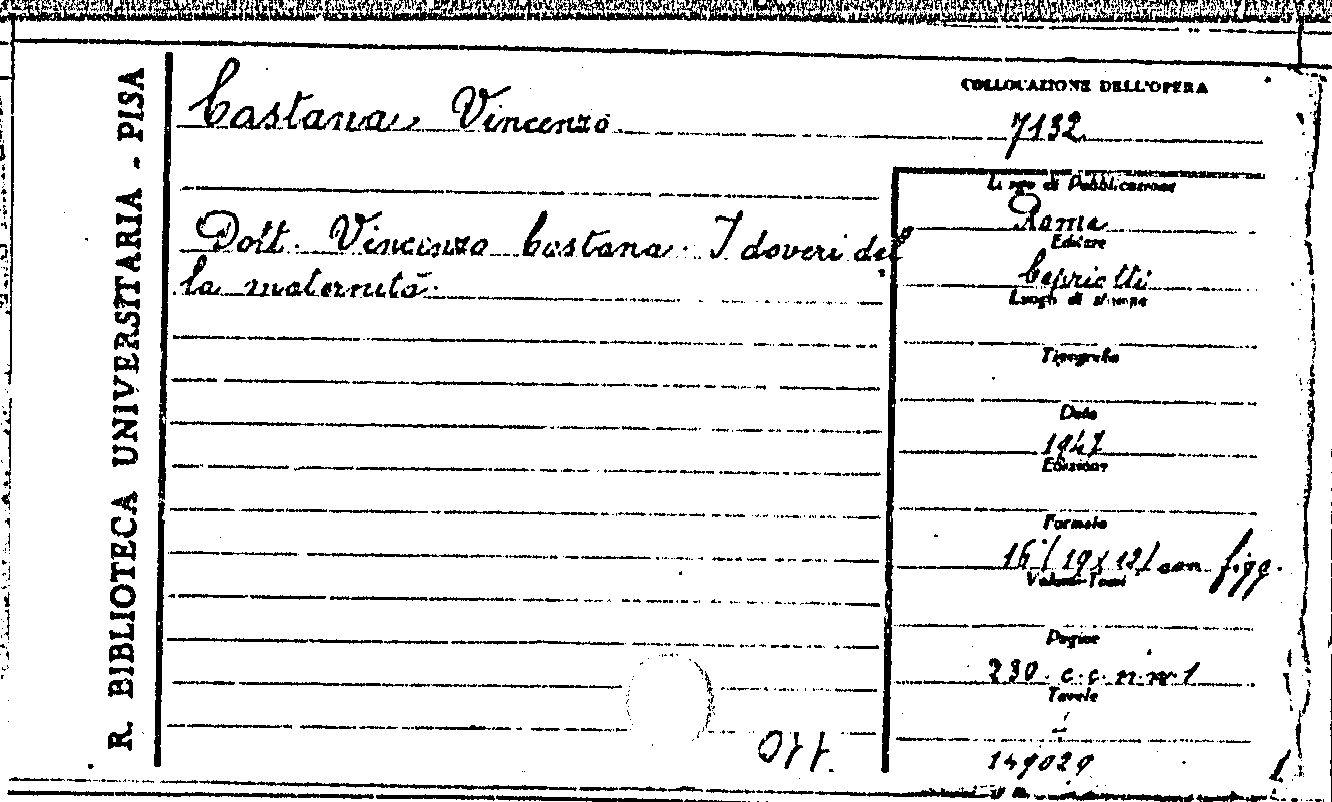 R. BIBLIOTECA UNIVERSITARIA - PISA
Castana Vincenzo.
COLLOCAZIONE DELL'OPERA
7132
Dott. Vincenzo Castana. I doveri del
la maternità.
Luogo di Pubblicazione
Roma
Editore
Capriotti
Luogo di stampa
Tipografia
Data
1947
Edizione
Formato
16°(19x12) con figg.
Volumi-Tomi
Pagine
230. c.c.n.n.1
Tavole
149029
Ott.